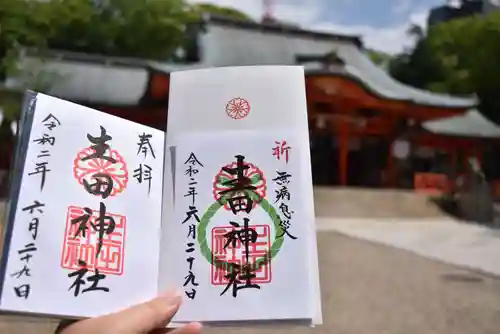 奉拝
生田神社
令和二年六月二十九日
祈
無病息災
生田神社
令和二年六月二十九日